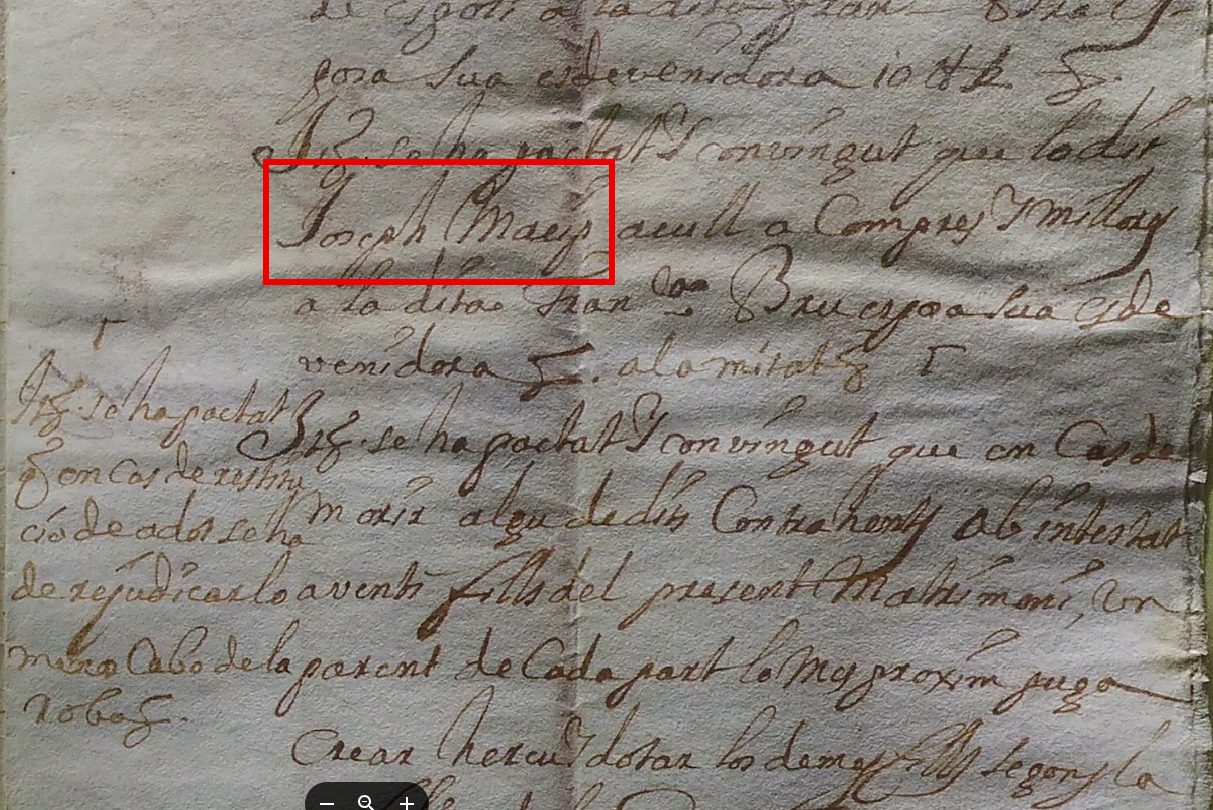 gora sua esdevenidora 10 ℔
Itt. se ha pactat y convingut que lo dit
Joseph Macip acull a Compres y millors
a la dita Fran.ca Bru esposa sua esde
venidora &. a la mitat &
Itt. se ha pactat y convingut que en Cas de
morir algu de dits Contrahents ab intestat
avent fills del present Matrimoni, un
parent de Cada part lo mes proxim puga
Crear hereu y dotar los demes fills segons la
Itt. se ha pactat
q en Cas de restitu
ció de adot se ha
de rejudicarlo
Cabo de la
roba &.